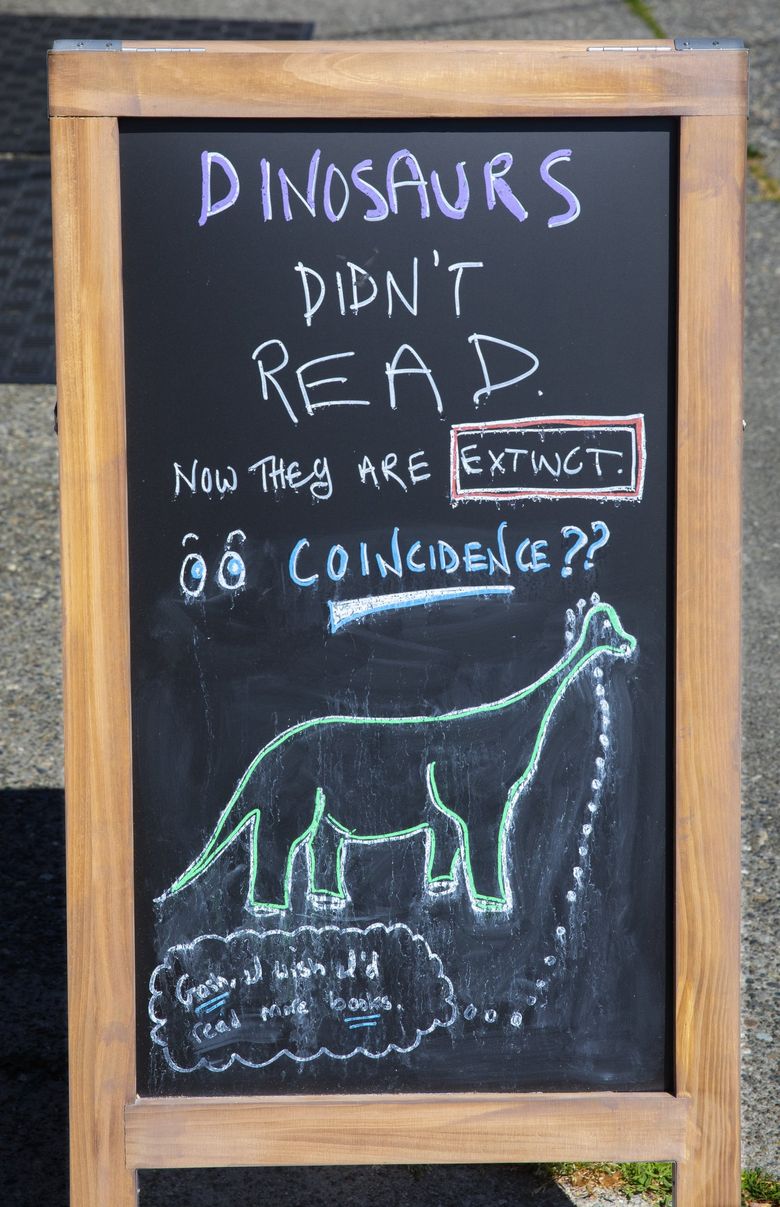 DINOSAURS
DIDN'T
READ.
NOW THEY ARE EXTINCT.
COINCIDENCE??
Gosh, I wish I'd
read more books.